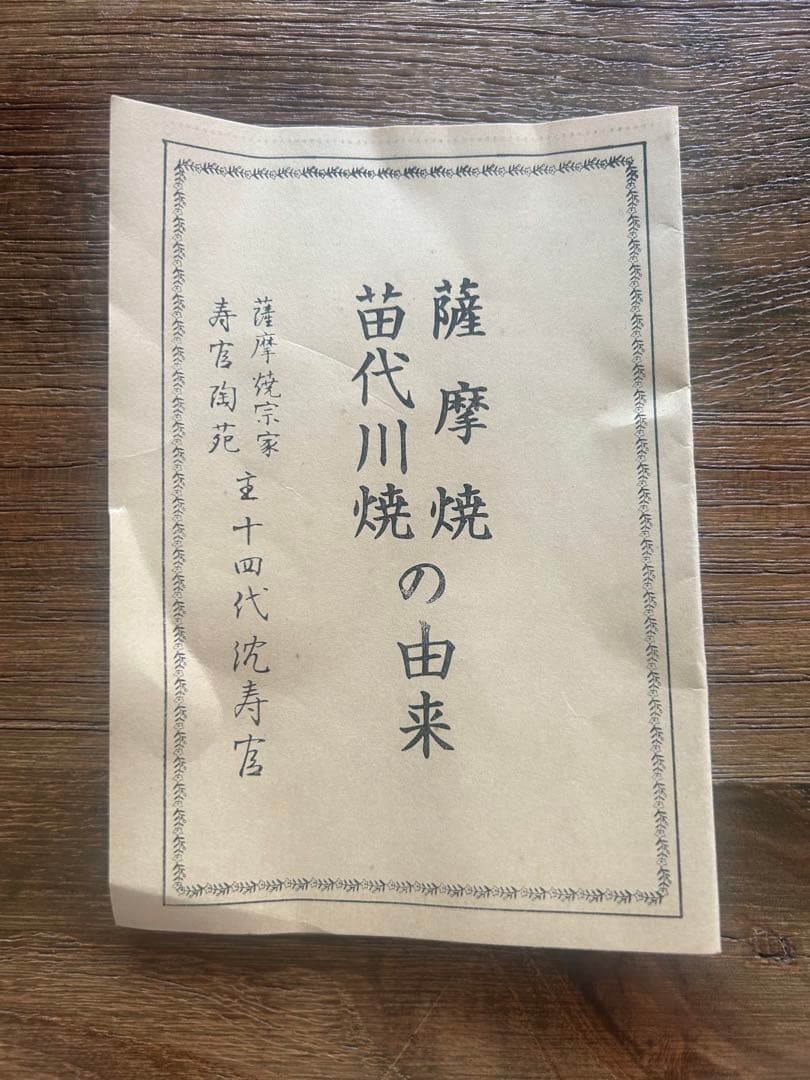 薩摩焼
苗代川焼
の由来
薩摩焼宗家
寿官陶苑
主十四代沈寿官